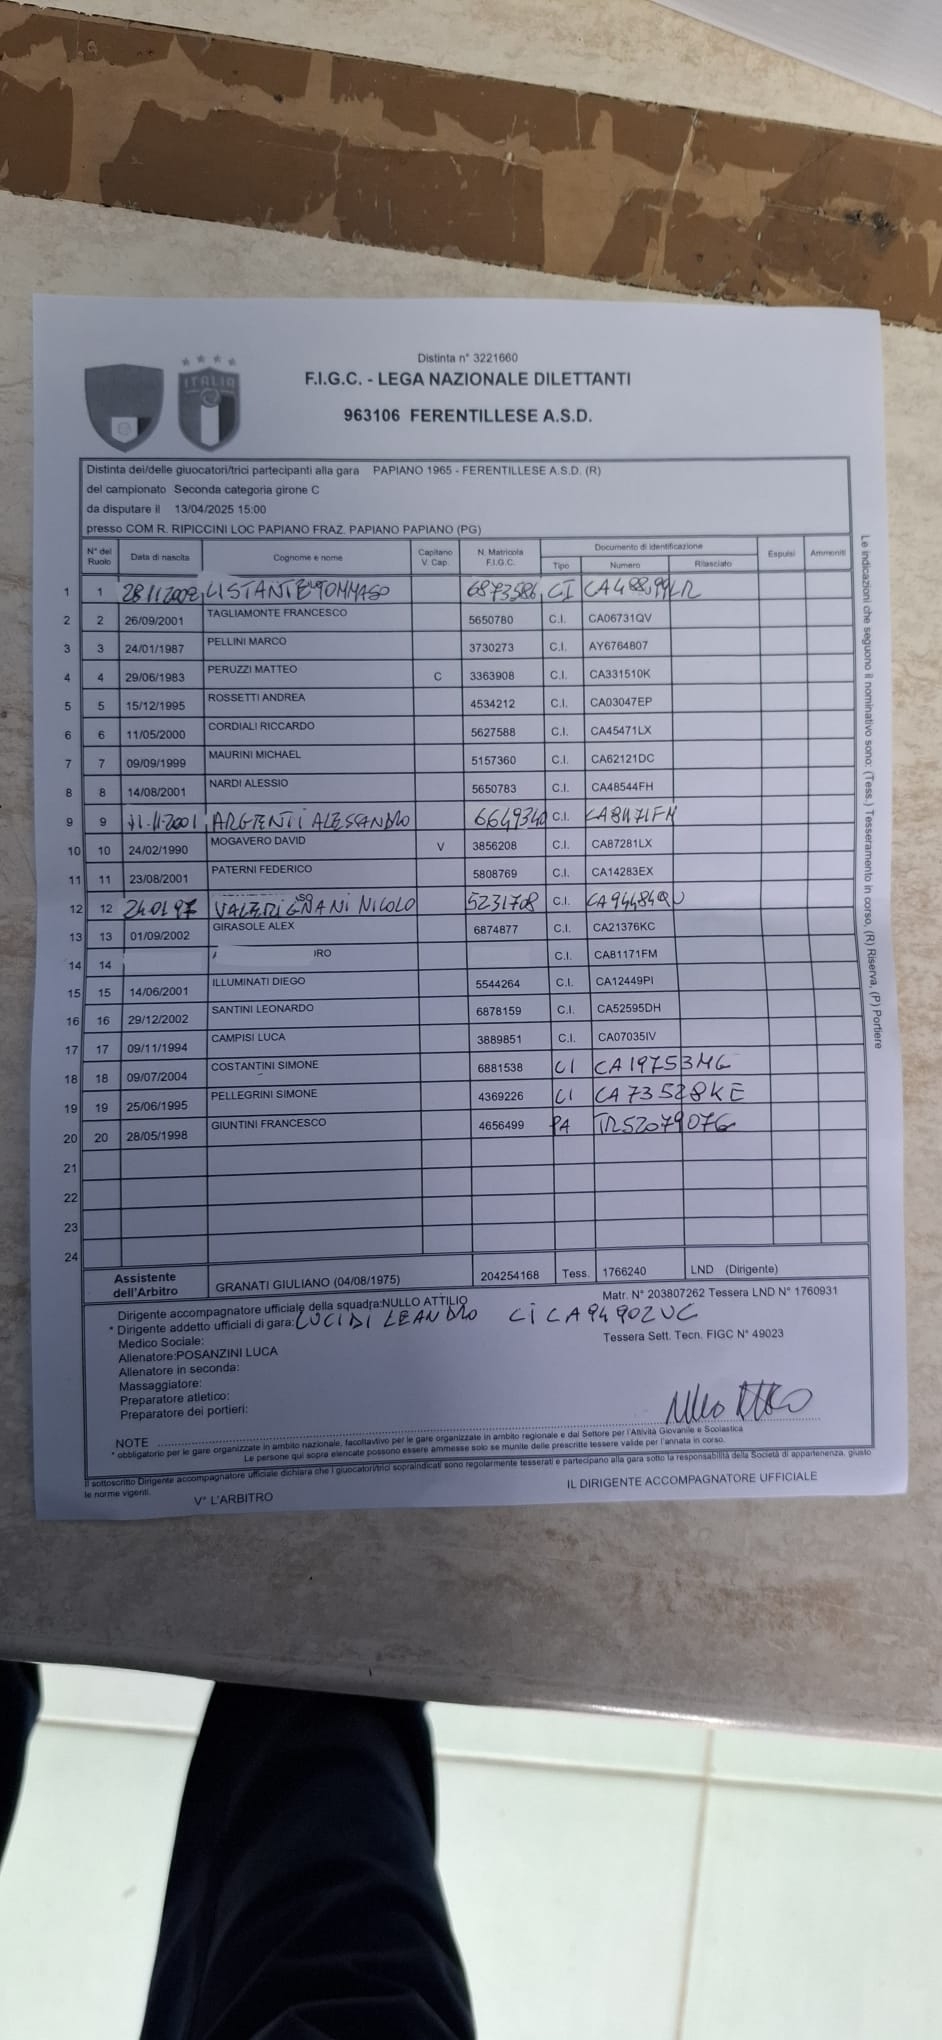 Distinta n° 3221660
F.I.G.C. - LEGA NAZIONALE DILETTANTI
ITALIA
963106 FERENTILLESE A.S.D.
Distinta dei/delle giuocatori/trici partecipanti alla gara PAPIANO 1965 - FERENTILLESE A.S.D. (R)
del campionato Seconda categoria girone C
da disputare il 13/04/2025 15:00
presso COM R. RIPICCINI LOC PAPIANO FRAZ. PAPIANO PAPIANO (PG)
N° del Ruolo Data di nascita Cognome e nome Capitano V. Cap. N. Matricola F.I.G.C. Documento di identificazione Espulsi Ammoniti
Tipo Numero Rilasciato
1 1 28.11.2002 LISTANTE TOMMASO 6873586 CI
2 2 26/09/2001 TAGLIAMONTE FRANCESCO 5650780 C.I. CA06731QV
3 3 24/01/1987 PELLINI MARCO 3730273 C.I. AY6764807
4 4 29/06/1983 PERUZZI MATTEO C 3363908 C.I. CA331510K
5 5 15/12/1995 ROSSETTI ANDREA 4534212 C.I. CA03047EP
6 6 11/05/2000 CORDIALI RICCARDO 5627588 C.I. CA45471LX
7 7 09/09/1999 MAURINI MICHAEL 5157360 C.I. CA62121DC
8 8 14/08/2001 NARDI ALESSIO 5650783 C.I. CA48544FH
9 9 ARGENTI ALESSANDRO 6649340 C.I. CA81171FM
10 10 24/02/1990 MOGAVERO DAVID V 3856208 C.I. CA87281LX
11 11 23/08/2001 PATERNI FEDERICO 5808769 C.I. CA14283EX
12 12 24.01.97 NICOLO 5231708 C.I. CA94484QU
13 13 01/09/2002 GIRASOLE ALEX 6874877 C.I. CA21376KC
14 14 C.I. CA81171FM
15 15 14/06/2001 ILLUMINATI DIEGO 5544264 C.I. CA12449PI
16 16 29/12/2002 SANTINI LEONARDO 6878159 C.I. CA52595DH
17 17 09/11/1994 CAMPISI LUCA 3889851 C.I. CA07035IV
18 18 09/07/2004 COSTANTINI SIMONE 6881538 CI CA19753MG
19 19 25/06/1995 PELLEGRINI SIMONE 4369226 CI CA73528KE
20 20 28/05/1998 GIUNTINI FRANCESCO 4656499 PA TR5207907G
21
22
23
24
Assistente dell'Arbitro GRANATI GIULIANO (04/08/1975) 204254168 Tess. 1766240 LND (Dirigente)
Dirigente accompagnatore ufficiale della squadra:NULLO ATTILIO Matr. N° 203807262 Tessera LND N° 1760931
* Dirigente addetto ufficiali di gara: LUCIDI LEANDRO CI CA94902UC
Medico Sociale:
Allenatore:POSANZINI LUCA Tessera Sett. Tecn. FIGC N° 49023
Allenatore in seconda:
Massaggiatore:
Preparatore atletico:
Preparatore dei portieri:
Nullo Attilio
NOTE
* obbligatorio per le gare organizzate in ambito nazionale, facoltavtivo per le gare organizzate in ambito regionale e dal Settore per l'Attività Giovanile e Scolastica
Le persone qui sopra elencate possono essere ammesse solo se munite delle prescritte tessere valide per l'annata in corso.
Il sottoscritto Dirigente accompagnatore ufficiale dichiara che i giuocatori/trici sopraindicati sono regolarmente tesserati e partecipano alla gara sotto la responsabilità della Società di appartenenza, giusto
le norme vigenti.
V° L'ARBITRO IL DIRIGENTE ACCOMPAGNATORE UFFICIALE
Le indicazioni che seguono il nominativo sono: (Tess.) Tesseramento in corso, (R) Riserva, (P) Portiere